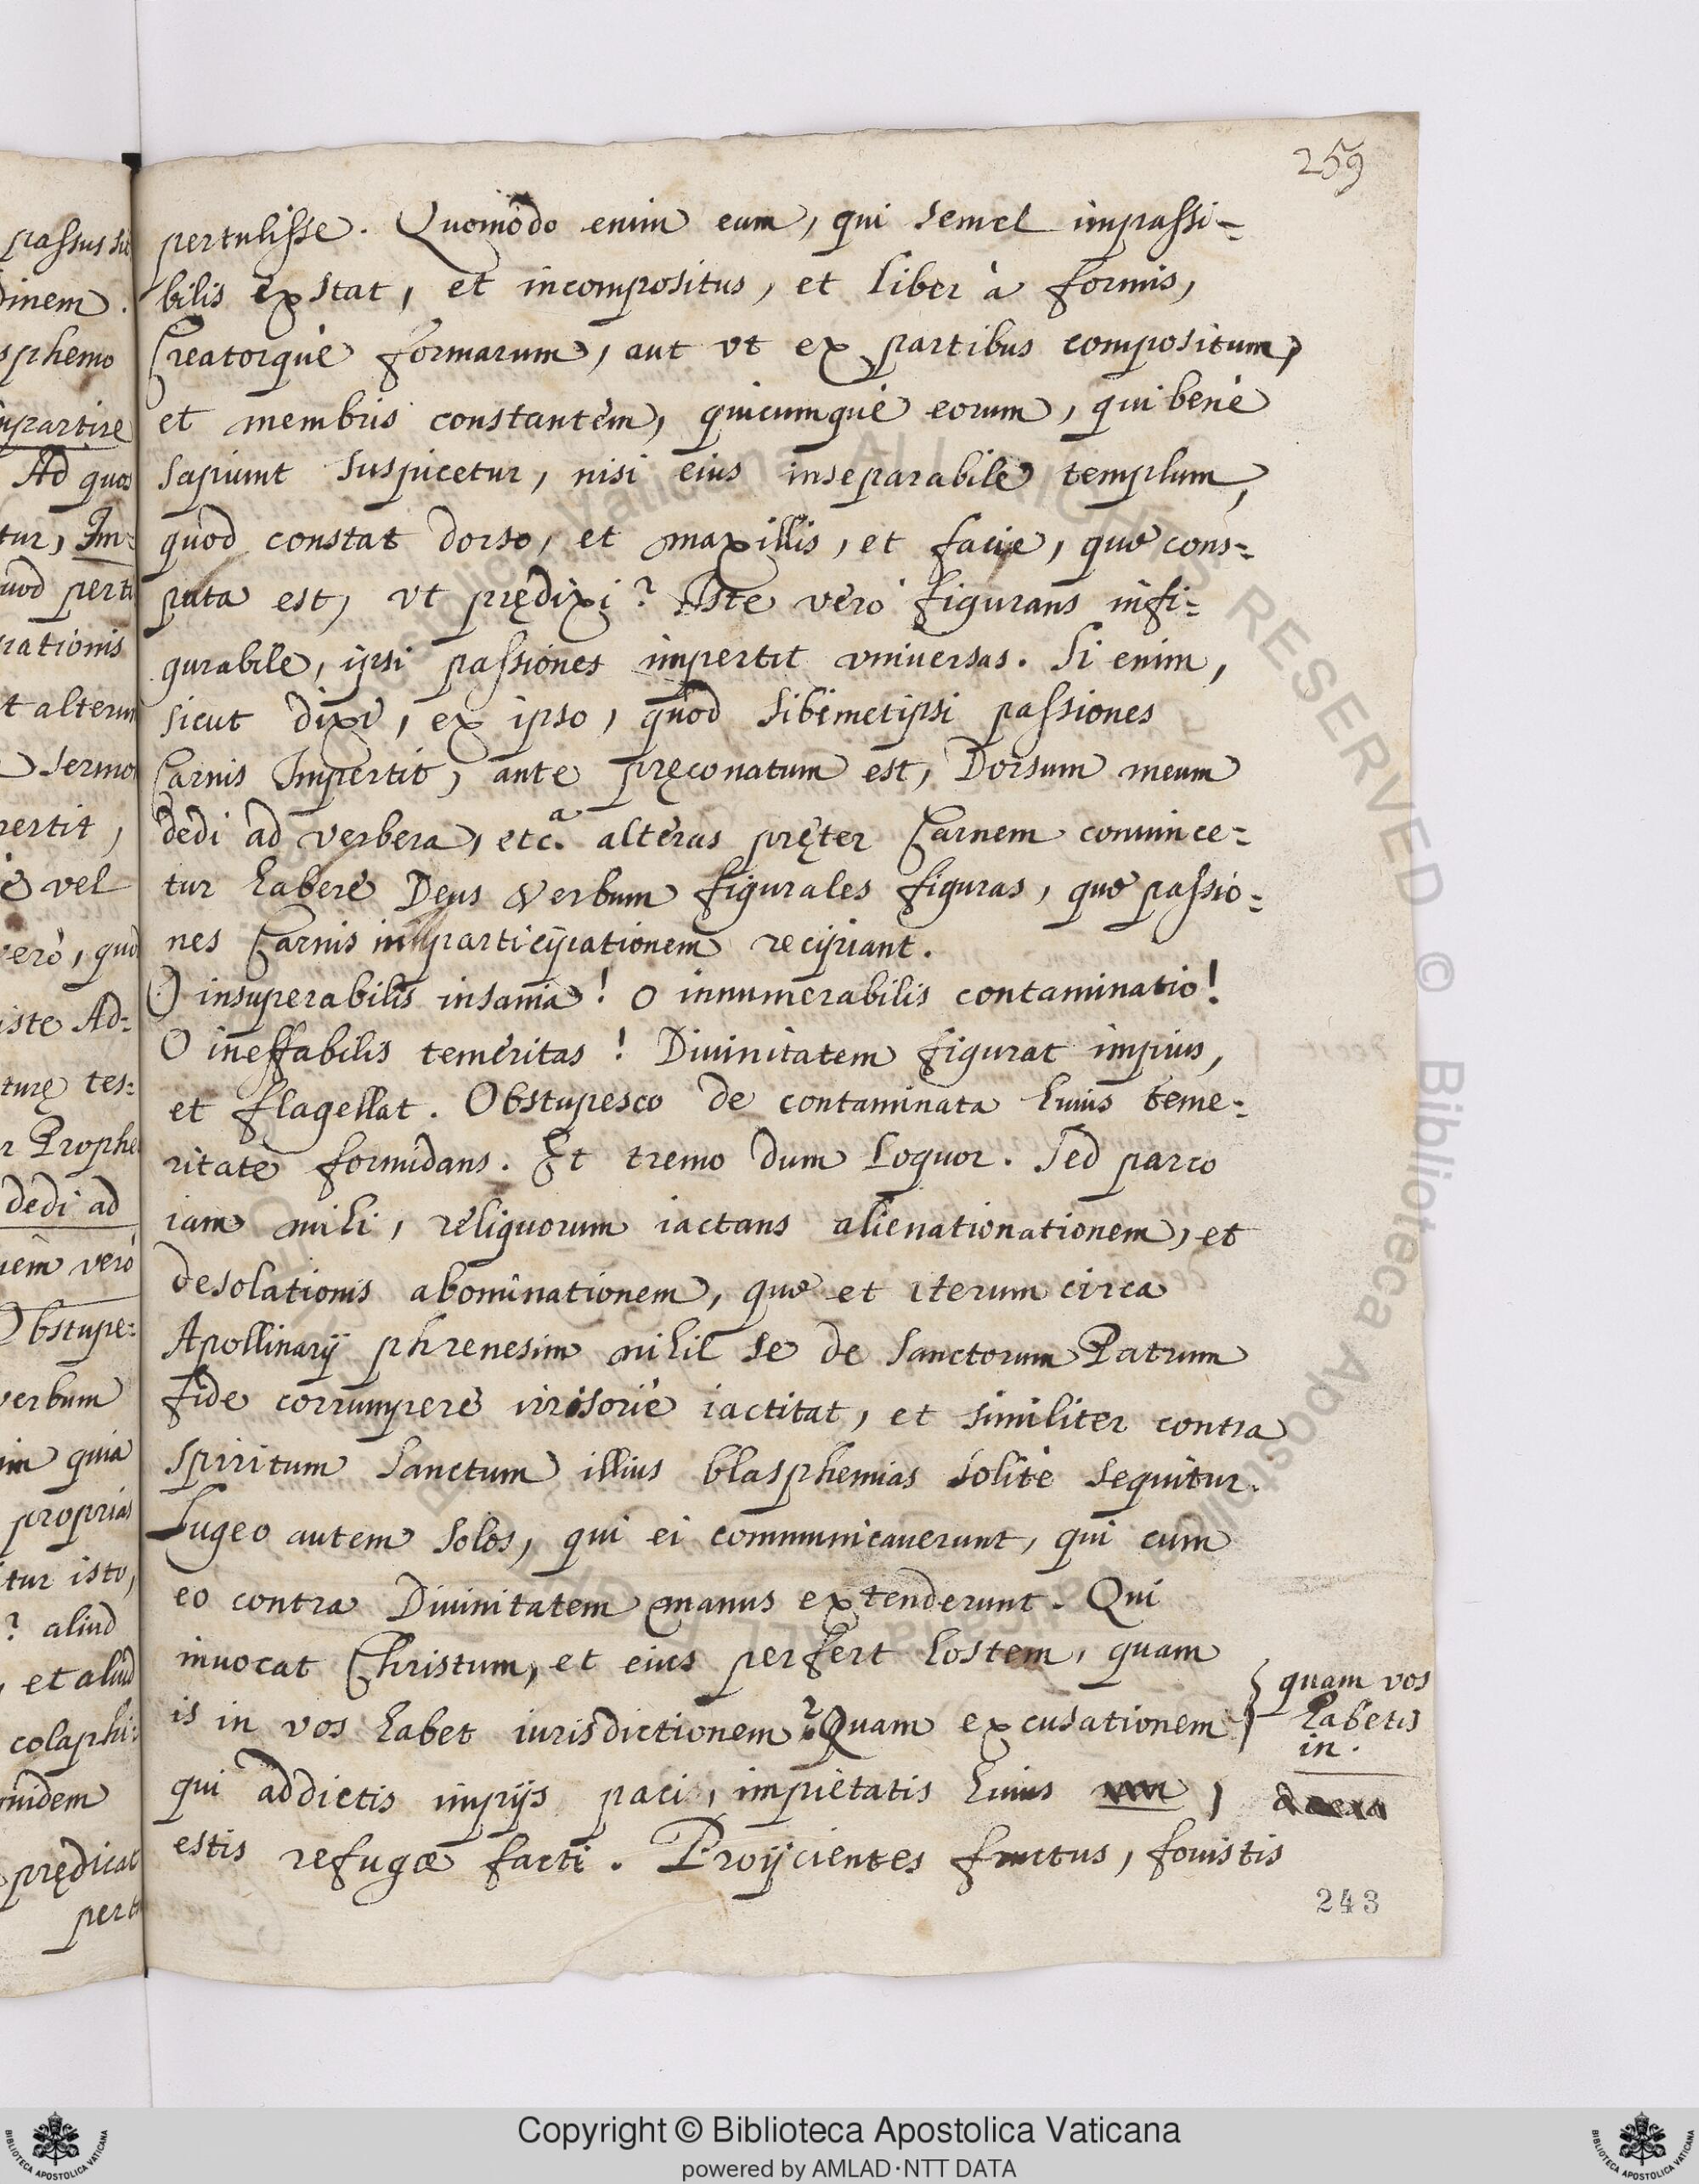 259
pertulisse. Quomodo enim eum, qui semel impassi=
bilis exstat, et incompositus, et liber à formis,
Creatorque formarum, aut vt ex partibus compositum,
et membris constantem, quicumque eorum, qui bene
sapiunt suspicetur, nisi eius inseparabile templum,
quod constat dorso, et maxillis, et facie, quæ cons=
puta est, vt prędixi? Iste vero figurans infi=
gurabile, ipsi passiones impertit vniuersas. Si enim,
sicut dixi, ex ipso, quod sibimetipsi passiones
Carnis Impertit, ante pręconatum est, Dorsum meum
dedi ad verbera, etc.a alteras pręter Carnem conuince=
tur habere Deus Verbum figurales figuras, quæ passio=
nes Carnis in participationem recipiant.
O insuperabilis insania! o innumerabilis contaminatio!
O ineffabilis temeritas! Diuinitatem figurat impius,
et flagellat. Obstupesco de contaminata huius teme=
ritate formidans. Et tremo dum loquor. Sed parco
iam mihi, reliquorum iactans alienationationem, et
desolationis abominationem, quæ et iterum circa
Apollinarij phrenesim nihil se de Sanctorum Patrum
fide corrumpere irrisorie iactitat, et similiter contra
spiritum Sanctum illius blasphemias solite sequitur.
Lugeo autem solos, qui ei communicauerunt, qui cum
eo contra Diuinitatem manus extenderunt. Qui
inuocat Christum, et eius perfert hostem, quam
is in vos habet iurisdictionem? Quam excusationem
quam vos
habetis
in.
qui addictis impijs paci, impietatis huius ,
estis refugæ facti. Proijcientes fructus, fouistis
243
passus sit
dinem.
sphemo
mpartire
Ad quos
tur, Im=
uod perti
rationis
t alterum
sermo
pertit,
e vel
vero, quod
iste Ad=
turę tes=
r Prophe
dedi ad
uem vero
Obstupe=
verbum
im quia
proprias
itur isto,
? aliud
, et aliud
colaphi=
uidem
prędicat
pert
Copyright © Biblioteca Apostolica Vaticana
powered by AMLAD·NTT DATA